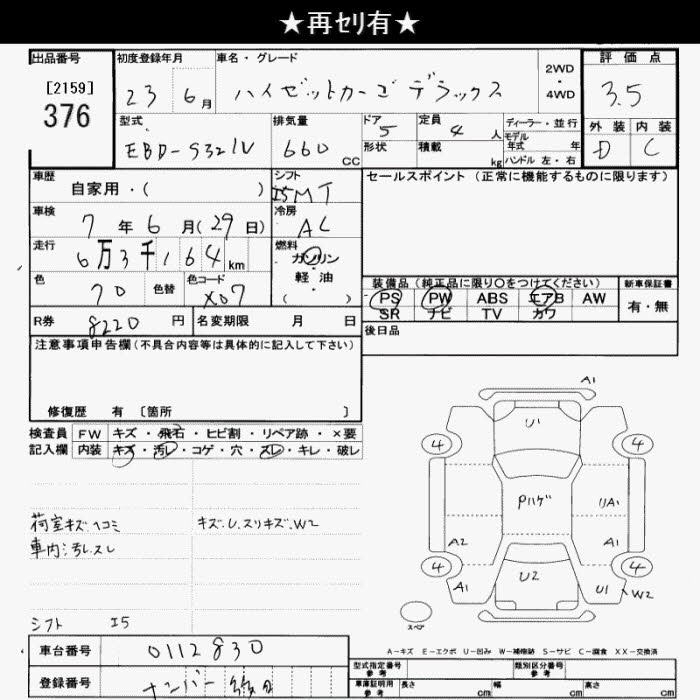 ★再ｾﾘ有★
出品番号
[2159]
376
初度登録年月
23 6月
車名・グレード
ハイゼットカーゴ デラックス
2WD
・
4WD
評価点
3.5
外装 内装
D C
型式
EBD-S321V
排気量
660 CC
ドア
5
形状
定員
4 人
積載
kg
ディーラー・並行
モデル
年式 年
ハンドル 左・右
車歴
自家用・( )
シフト
I5MT
セールスポイント (正常に機能するものに限ります)
車検
7年6月(29日)
冷房
AC
走行
6万3千164km
燃料
ガソリン
・
軽・油
( )
色
色替
色コード
X07
装備品(純正品に限り○をつけてください)
PS PW ABS エアB AW
SR ナビ TV カワ
新車保証書
有・無
R券
8220 円
名変期限 月 日
後日品
注意事項申告欄(不具合内容等は具体的に記入して下さい)
修復歴 有 〔箇所 〕
検査員
記入欄
FW キズ・飛石・ヒビ割・リペア跡・×要
内装 キズ・汚レ・コゲ・穴・スレ・キレ・破レ
荷室キズ・ヘコミ
車内汚レ.スレ
キズ.U.スリキズ.W2
シフト I5
A1
U1
4
4
Pハゲ
リA1
A2
A1
4
4
A1
U2
U1
W2
スペア
A-キズ E-エクボ U-凹み W-補修跡 S-サビ C-腐食 XX-交換済
車台番号
0112830
登録番号
ナンバー
型式指定番号
参考
類別区分番号
参考
車庫証明用
参考
長さ cm
幅 cm
高さ cm